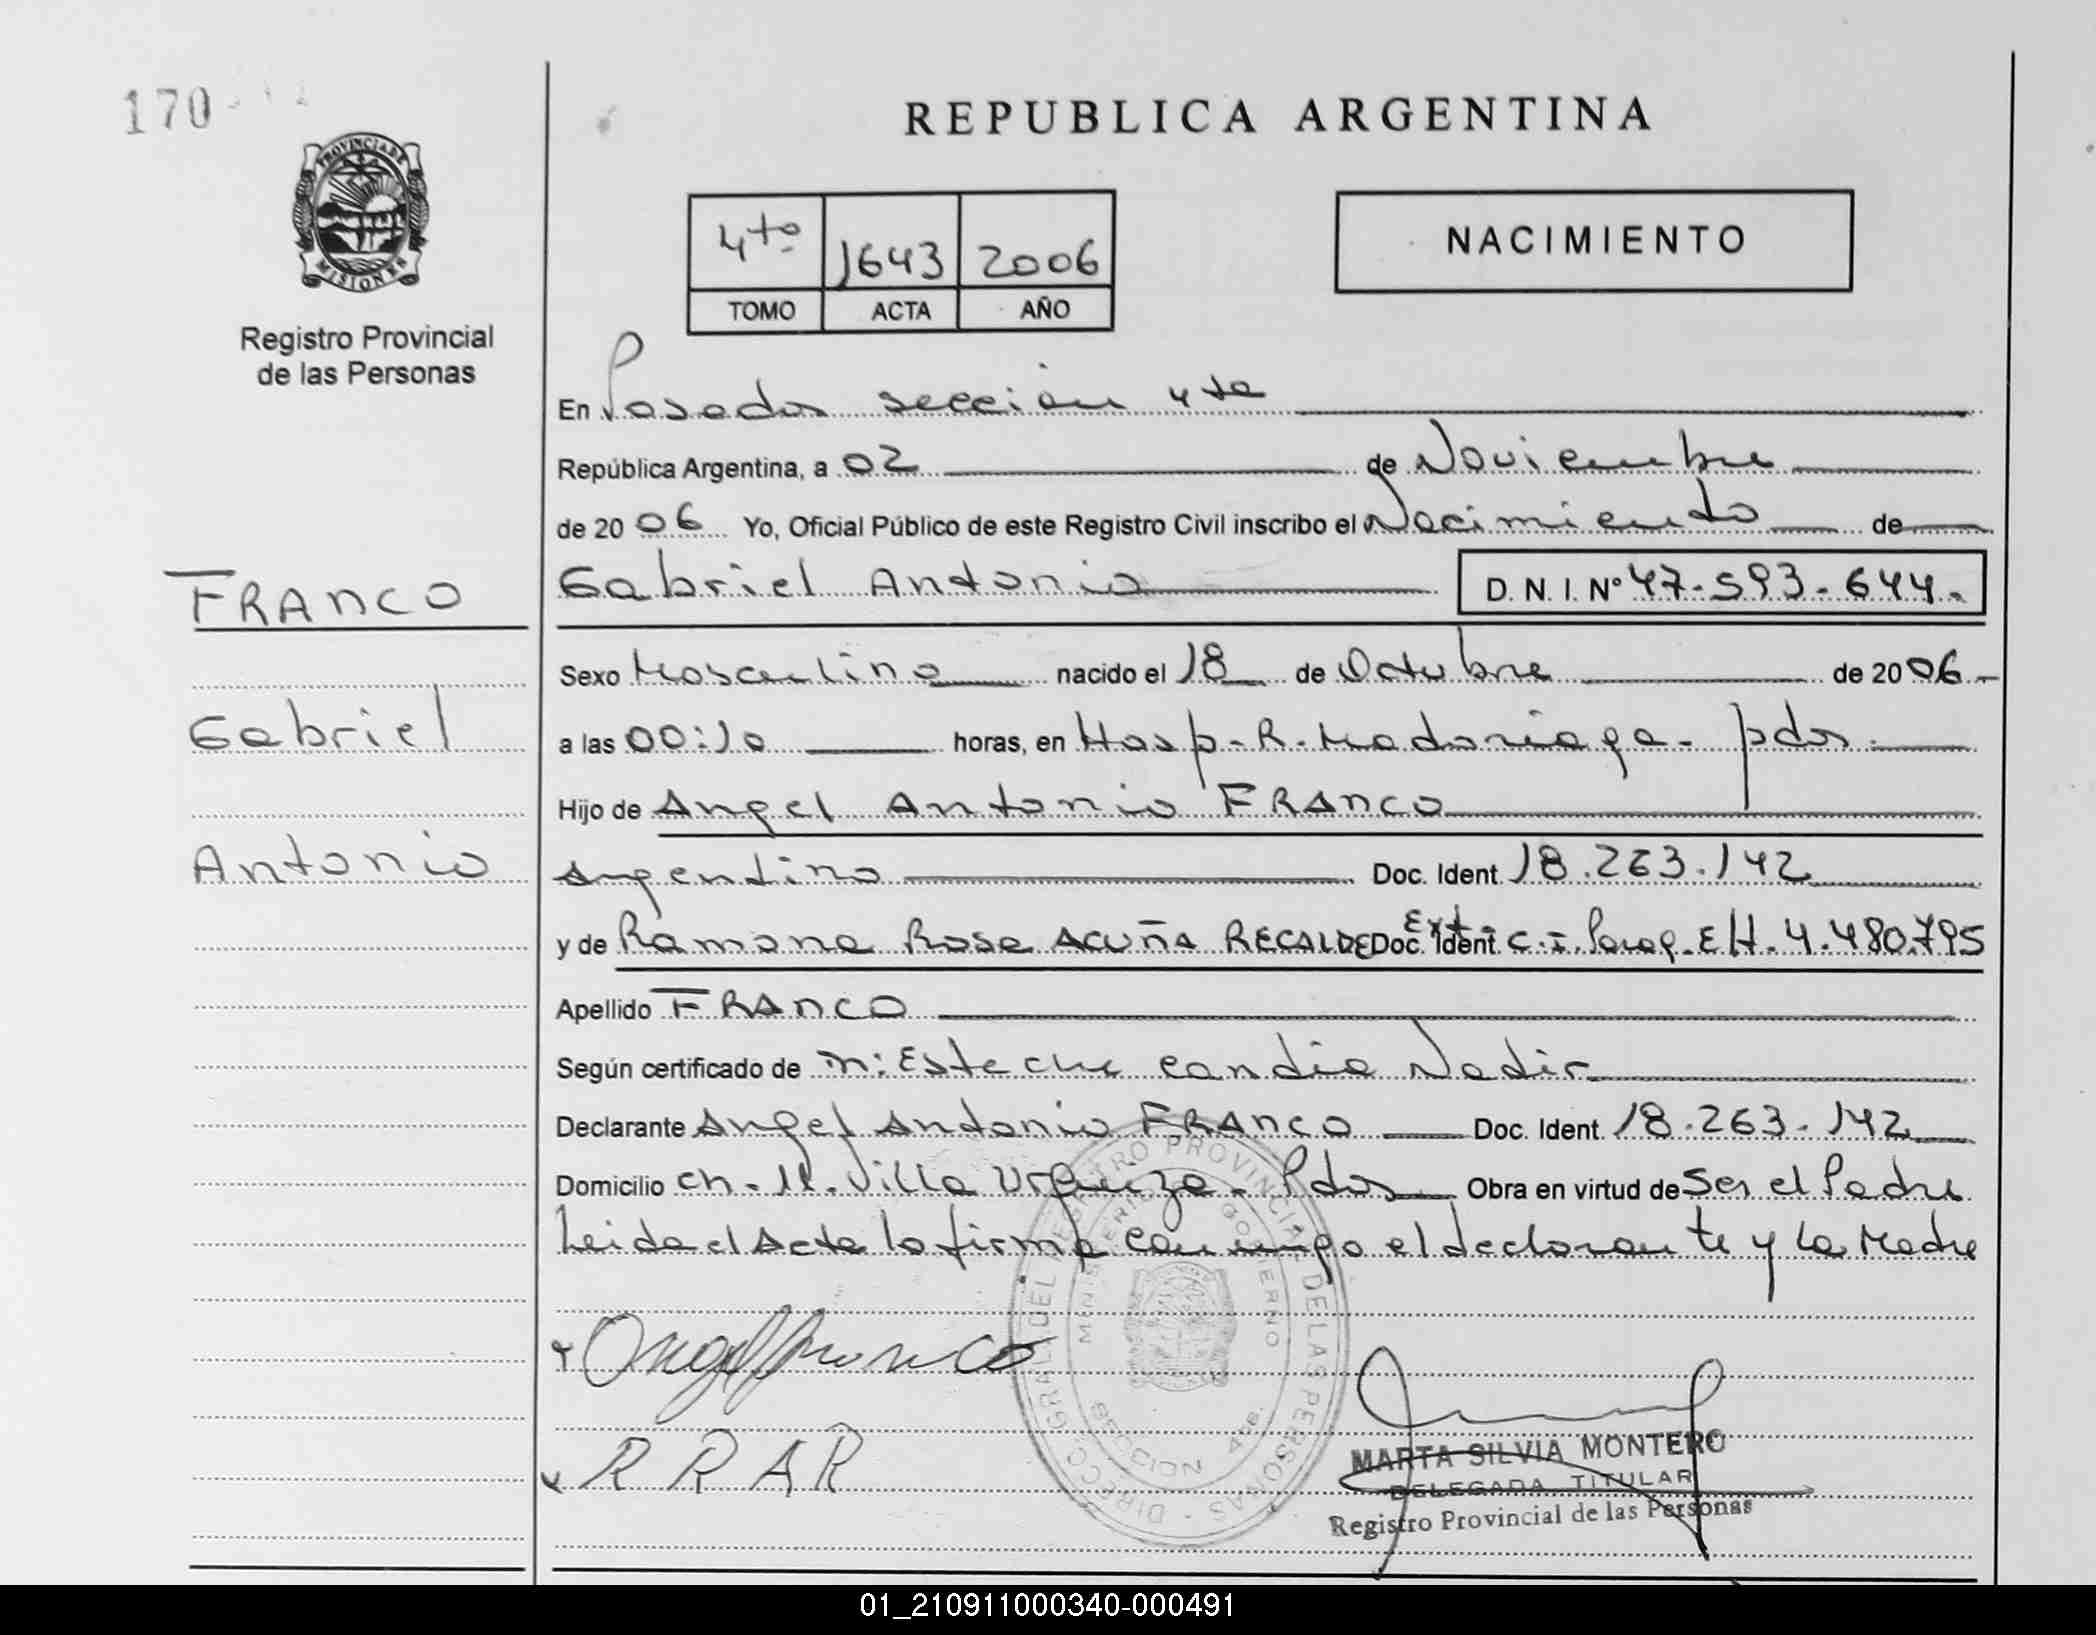 170
PROVINCIA DE
MISIONES
Registro Provincial
de las Personas
REPUBLICA ARGENTINA
4to 1643 2006
TOMO ACTA AÑO
NACIMIENTO
En Posadas sección 4ta
República Argentina, a 02 de Noviembre
de 2006 Yo, Oficial Público de este Registro Civil inscribo el Nacimiento de
Gabriel Antonio D. N. I. Nº 47-593-644-
FRANCO
Gabriel
Antonio
Sexo Masculino nacido el 18 de Octubre de 2006-
a las 00:10 horas, en Hosp. R. Madariaga - pdas.
Hijo de Angel Antonio FRANCO
Argentino Doc. Ident. 18.263.142
y de Ramona Rosa ACUÑA RECALDE Doc. Ident. Ext. C. I. Parag. EH. 4.480.795
Apellido FRANCO
Según certificado de m: Esteche Candia Nadir
Declarante Angel Antonio FRANCO Doc. Ident. 18.263.142
Domicilio ch. 11. Villa Urquiza - Pdas Obra en virtud de Ser el Padre
Leida el Acta la firma conmigo el declarante y la Madre
Angel Franco
R R A R
DIRECC. GRAL. DEL REGISTRO PROVINCIAL DE LAS PERSONAS
MINISTERIO GOBIERNO
SECCION 4ta.
MARTA SILVIA MONTERO
DELEGADA TITULAR
Registro Provincial de las Personas
01_210911000340-000491